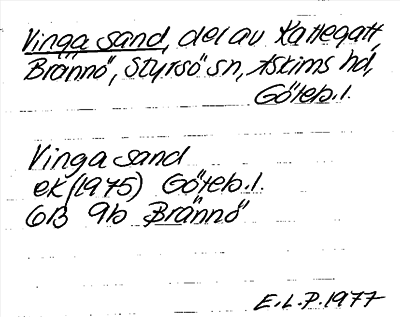 Vinga sand, del av Kattegatt,
Brännö, Styrsö sn, Askims hd,
Göteb.l.
Vinga sand
ek (1975) Göteb.l.
6B 9b Brännö
E.L.P.1977